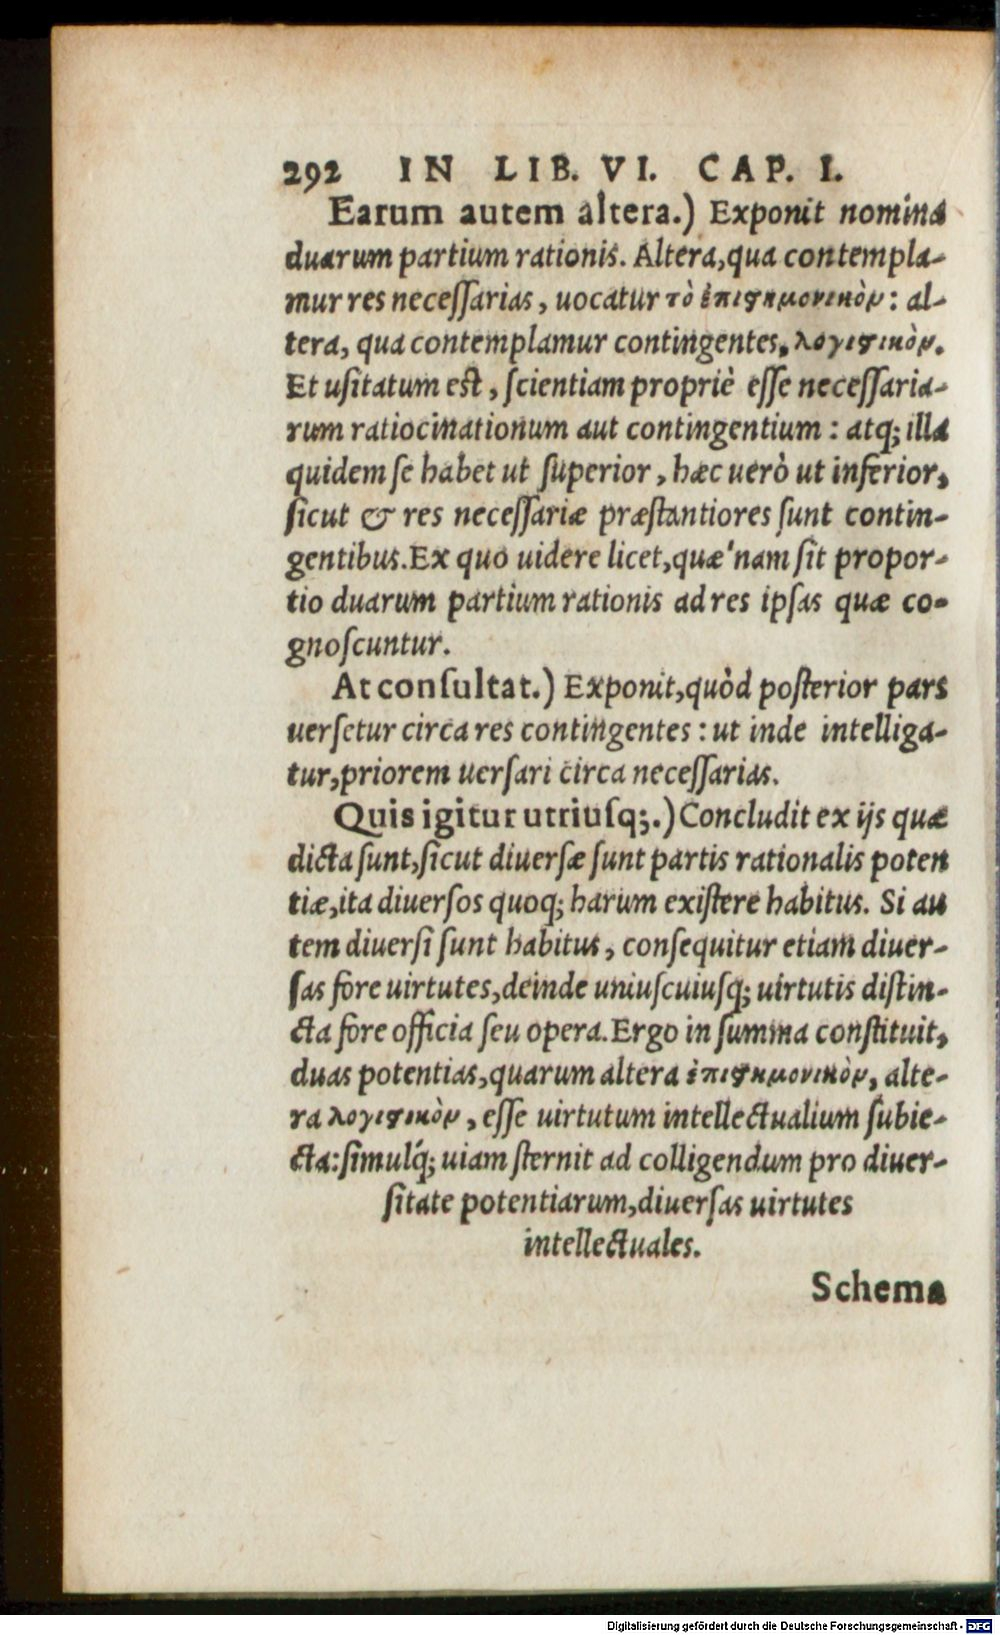 292 IN LIB. VI. CAP. I.
Earum autem altera.) Exponit nomina
duarum partium rationis. Altera,qua contempla-
mur res neceſſarias, uocatur τὸ ἐπιϛημονικὸν: al-
tera, qua contemplamur contingentes, λογιϛικὸν.
Et uſitatum est, ſcientiam propriè eſſe neceſſaria-
rum ratiocinationum aut contingentium: atq; illa
quidem ſe habet ut ſuperior, hæc uerò ut inferior,
ſicut & res neceſſariæ præſtantiores ſunt contin-
gentibus.Ex quo uidere licet,quæ'nam ſit propor-
tio duarum partium rationis ad res ipſas quæ co-
gnoſcuntur.
At conſultat.) Exponit,quòd poſterior pars
uerſetur circa res contingentes: ut inde intelliga-
tur,priorem uerſari circa neceſſarias.
Quis igitur utriuſq;.) Concludit ex ijs quæ
dicta ſunt,ſicut diuerſæ ſunt partis rationalis poten
tiæ,ita diuerſos quoq; harum exiſtere habitus. Si au
tem diuerſi ſunt habitus, conſequitur etiam diuer-
ſas fore uirtutes,deinde uniuſcuiuſq; uirtutis diſtin-
cta fore officia ſeu opera.Ergo in ſumma conſtituit,
duas potentias,quarum altera ἐπιϛημονικὸν, alte-
ra λογιϛικὸν, eſſe uirtutum intellectualium ſubie-
cta:ſimulq́; uiam ſternit ad colligendum pro diuer-
ſitate potentiarum,diuerſas uirtutes
intellectuales.
Schema
Digitalisierung gefördert durch die Deutsche Forschungsgemeinschaft - DFG